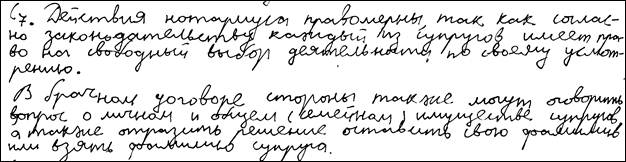 С7. Действия нотариуса правомерны, так как соглас-
но законодательства каждый из супругов имеет пра-
во на свободный выбор деятельности по своему усмот-
рению.
В брачном договоре стороны также могут оговорить
вопрос о личном и общем (семейном) имуществе супругов,
а также отразить решение оставить свою фамилию
или взять фамилию супруга.